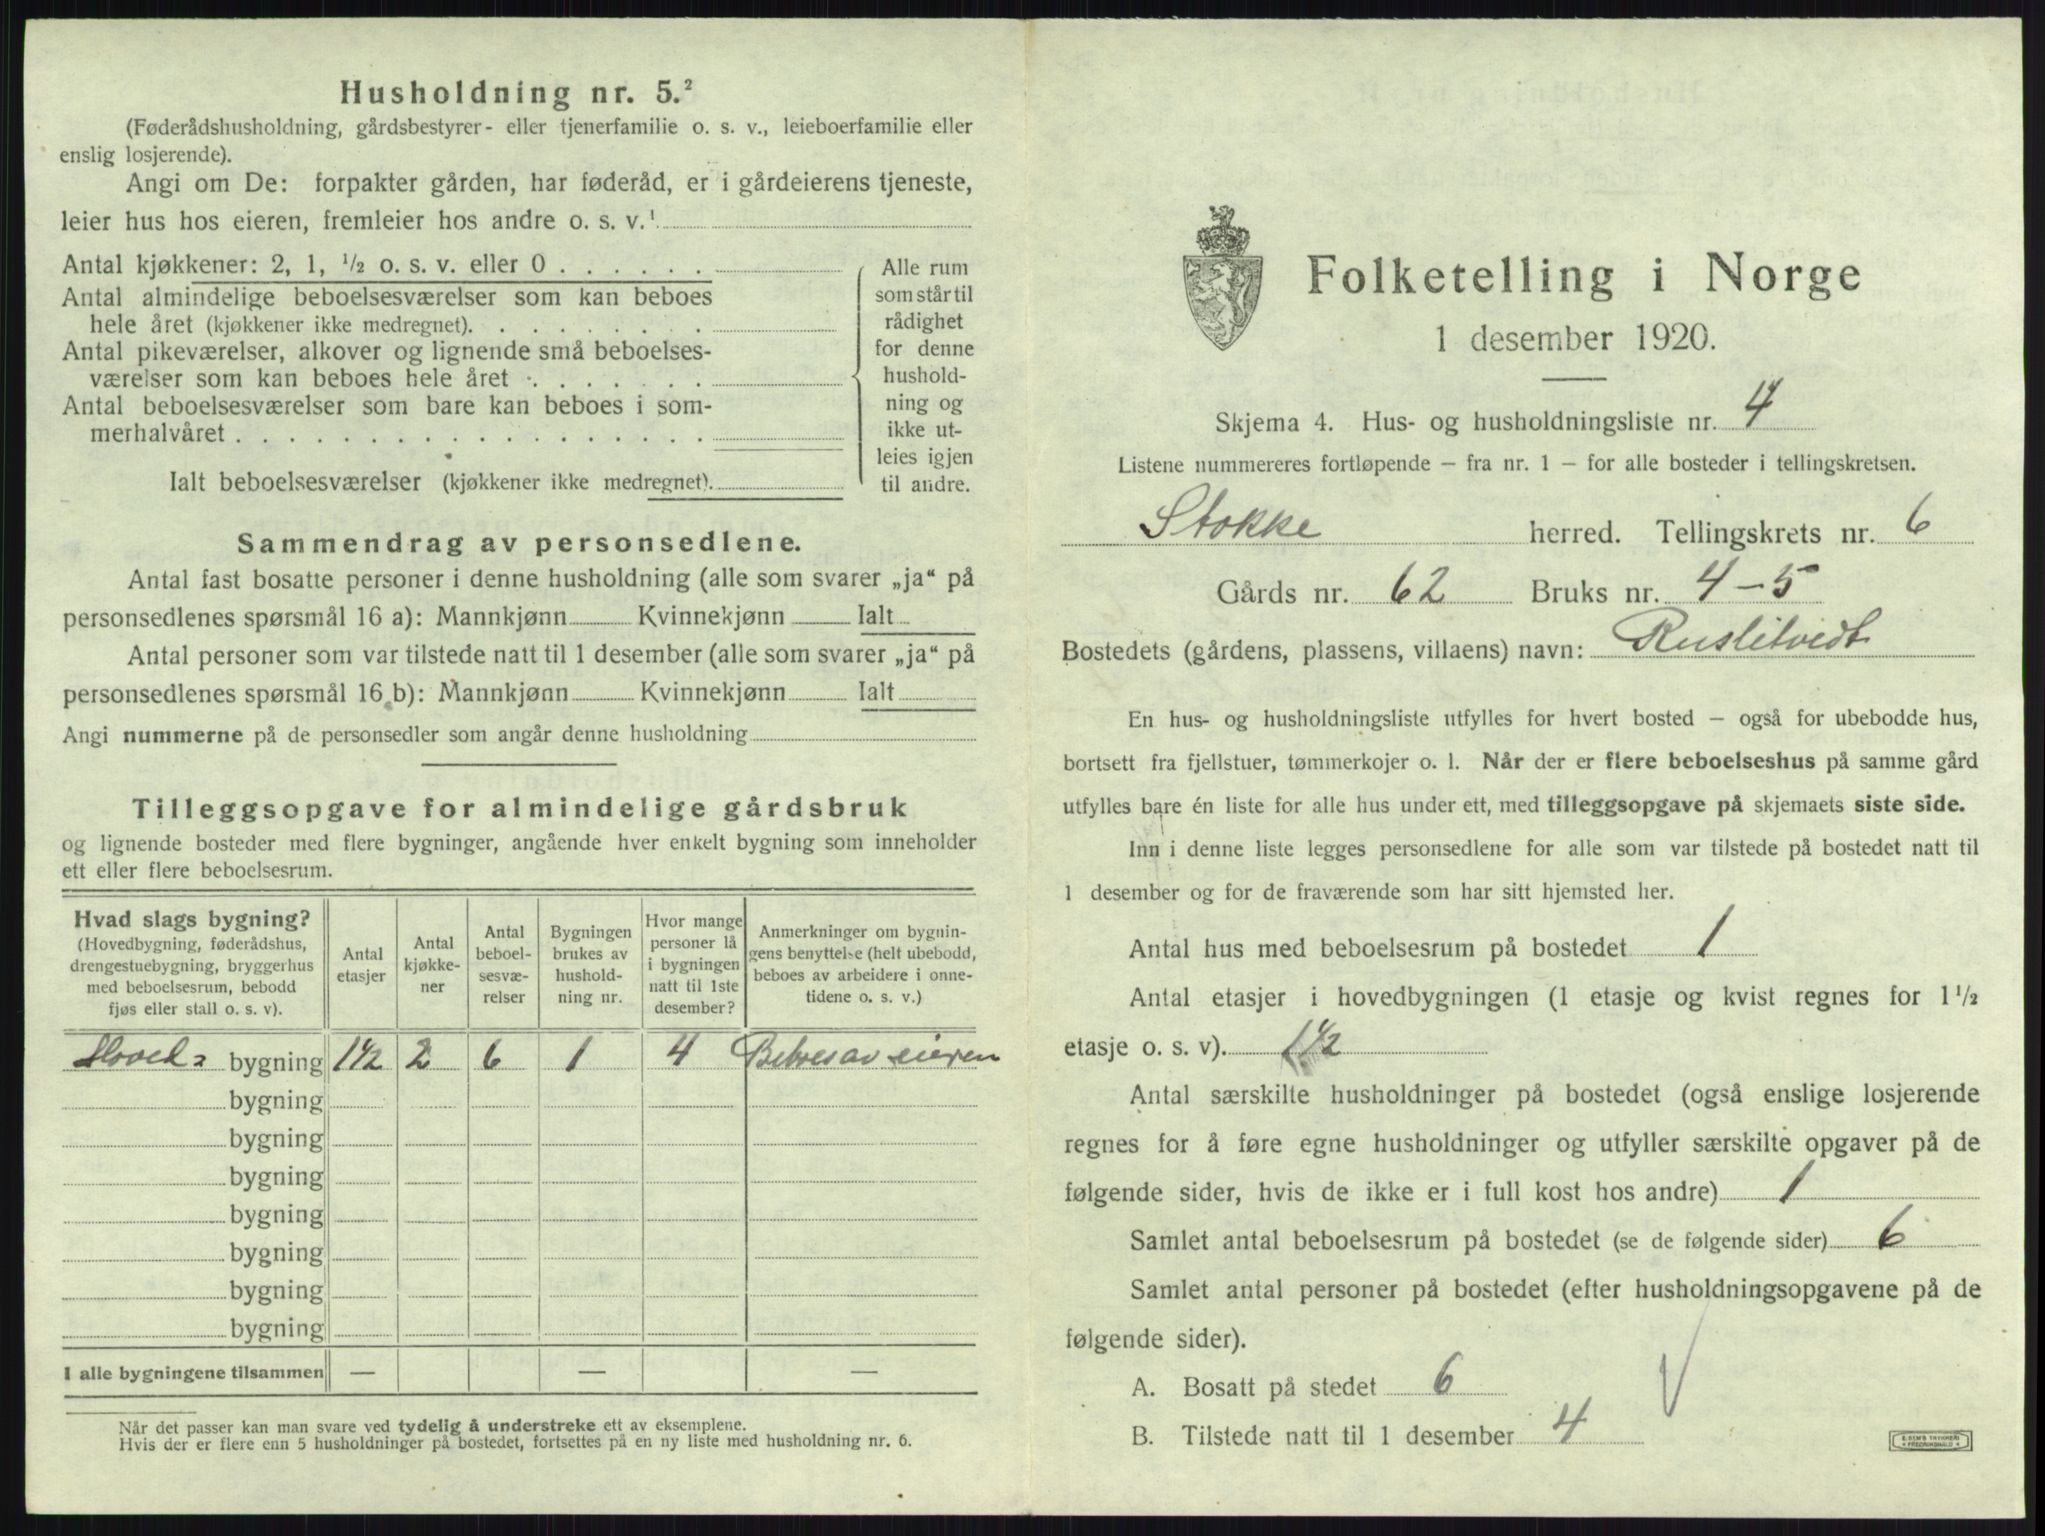 Husholdning nr. 5.²
(Føderådshusholdning, gårdsbestyrer- eller tjenerfamilie o. s. v., leieboerfamilie eller
enslig losjerende).
Angi om De: forpakter gården, har føderåd, er i gårdeierens tjeneste,
leier hus hos eieren, fremleier hos andre o. s. v.¹
Antal kjøkkener: 2, 1, ½ o. s. v. eller 0 . . . . . .
Antal almindelige beboelsesværelser som kan beboes
hele året (kjøkkener ikke medregnet). . . . . . . . .
Antal pikeværelser, alkover og lignende små beboelses-
værelser som kan beboes hele året . . . . . . .
Antal beboelsesværelser som bare kan beboes i som-
merhalvåret . . . . . . . . . . . . . . . . . .
Ialt beboelsesværelser (kjøkkener ikke medregnet).
Alle rum
som står til
rådighet
for denne
hushold-
ning og
ikke ut-
leies igjen
til andre.
Sammendrag av personsedlene.
Antal fast bosatte personer i denne husholdning (alle som svarer „ja“ på
personsedlenes spørsmål 16 a): Mannkjønn Kvinnekjønn Ialt
Antal personer som var tilstede natt til 1 desember (alle som svarer „ja“ på
personsedlenes spørsmål 16 b): Mannkjønn Kvinnekjønn Ialt
Angi nummerne på de personsedler som angår denne husholdning
Tilleggsopgave for almindelige gårdsbruk
og lignende bosteder med flere bygninger, angående hver enkelt bygning som inneholder
ett eller flere beboelsesrum.
Hvad slags bygning?
(Hovedbygning, føderådshus,
drengestuebygning, bryggerhus
med beboelsesrum, bebodd
fjøs eller stall o. s. v).
Antal
etasjer
Antal
kjøkke-
ner
Antal
beboel-
sesvæ-
relser
Bygningen
brukes av
hushold-
ning nr.
Hvor mange
personer lå
i bygningen
natt til 1ste
desember?
Anmerkninger om bygnin-
gens benyttelse (helt ubebodd,
beboes av arbeidere i onne-
tidene o. s. v.)
Hoved= bygning 1½ 2 6 1 4 Beboes av eieren
bygning
bygning
bygning
bygning
bygning
bygning
bygning
I alle bygningene tilsammen — — —
Når det passer kan man svare ved tydelig å understreke ett av eksemplene.
Hvis der er flere enn 5 husholdninger på bostedet, fortsettes på en ny liste med husholdning nr. 6.
Folketelling i Norge
1 desember 1920.
Skjema 4. Hus- og husholdningsliste nr. 4
Listene nummereres fortløpende — fra nr. 1 — for alle bosteder i tellingskretsen.
Stokke herred. Tellingskrets nr. 6
Gårds nr. 62 Bruks nr. 4-5
Bostedets (gårdens, plassens, villaens) navn: Ruslitvedt
En hus- og husholdningsliste utfylles for hvert bosted — også for ubebodde hus,
bortsett fra fjellstuer, tømmerkojer o. l. Når der er flere beboelseshus på samme gård
utfylles bare én liste for alle hus under ett, med tilleggsopgave på skjemaets siste side.
Inn i denne liste legges personsedlene for alle som var tilstede på bostedet natt til
1 desember og for de fraværende som har sitt hjemsted her.
Antal hus med beboelsesrum på bostedet 1
Antal etasjer i hovedbygningen (1 etasje og kvist regnes for 1½
etasje o. s. v). 1½
Antal særskilte husholdninger på bostedet (også enslige losjerende
regnes for å føre egne husholdninger og utfyller særskilte opgaver på de
følgende sider, hvis de ikke er i full kost hos andre) 1
Samlet antal beboelsesrum på bostedet (se de følgende sider) 6
Samlet antal personer på bostedet (efter husholdningsopgavene på de
følgende sider).
A. Bosatt på stedet 6
B. Tilstede natt til 1 desember 4
E. SEM'S TRYKKERI
FREDRIKSHALD